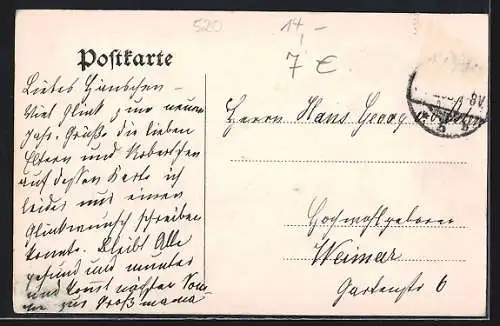 520
14,-
7 €
Postkarte
Liebes Hänschen –
Viel Glück zum neuen
Jahr. Grüße die lieben
Eltern und
auf dessen Karte ich
leider nur einen
Glückwunsch schreiben
konnte. Bleibt Alle
gesund und munter
und kommt nächsten Som-
mer zur Großmama
Herrn Hans Georg
Hochwohlgeboren
Weimar
Gartenstr 6